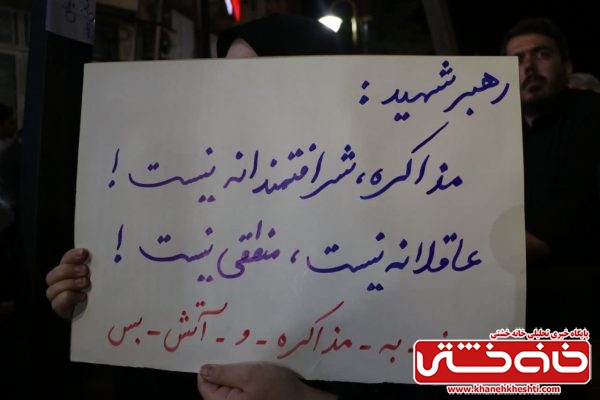 رهبر شهید :
مذاکره، شرافتمندانه نیست !
عاقلانه نیست، منطقی نیست !
به - مذاکره - و - آتش - بس
پایگاه خبری تحلیلی خانه خشتی
خانه خشتی
www.khanehkheshti.com